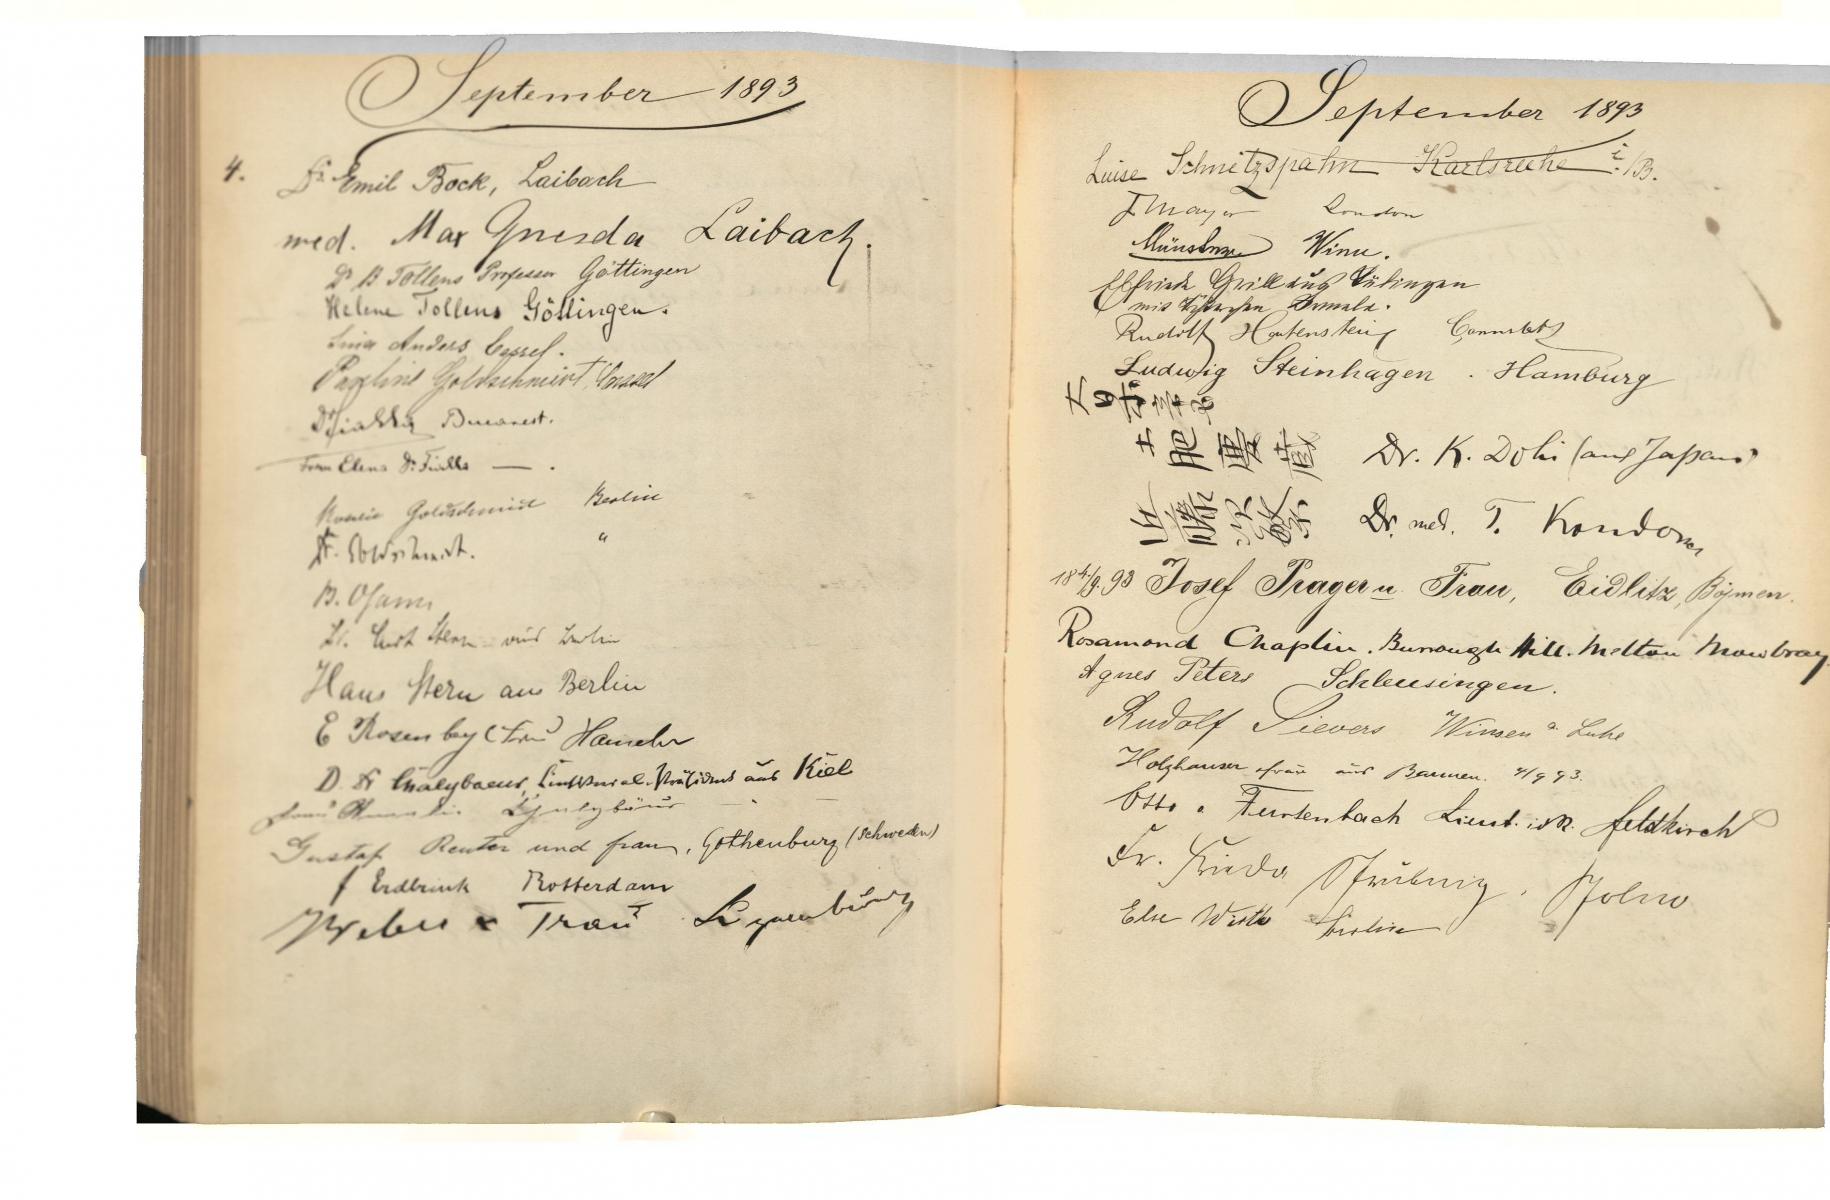 September 1893
4. Dr Emil Bock, Laibach
med. Max Gnesda Laibach.
Dr B Tollens Professor Göttingen
Helene Tollens Göttingen.
Anders Cassel.
Pauline Goldschmidt, Cassel
Dr Fialla Bucarest.
Frau Elena Dr Fialla — .
Rosalie Goldschmidt Berlin
Dr. Goldschmidt. "
B. Osann
Dr. Curt Stern aus Berlin
Hans Stern aus Berlin
E Rosenberg (Frau) Hameln
D. Dr Chalybaeus, aus Kiel
Frau Chalybäus — " —
Gustaf Reuter und frau, Gothenburg (Schweden)
Erdbrink Rotterdam
Weber & Frau Luxemburg
September 1893
Luise Schnitzspahn Karlsruhe i./B.
J Mayer London
Wien.
Elfriede Grill aus Tübingen
mit Irmela.
Rudolf Hartenstein Cannstatt
Ludwig Steinhagen. Hamburg
土肥慶蔵 Dr. K. Dohi (aus Japan)
近藤次繁 Dr. med. T. Kondo
18 4./9. 93 Josef Prager u. Frau, Eidlitz, Böhmen.
Rosamond Chaplin. Burrough Hill. Melton Mowbray.
Agnes Peters Schleusingen.
Rudolf Sievers Winsen a Luhe
Holzhauser Frau aus Barmen. 4/9 93.
Otto v. Furtenbach Lieut. i. d. R. Feldkirch
Fr. Frieda
Else Berlin